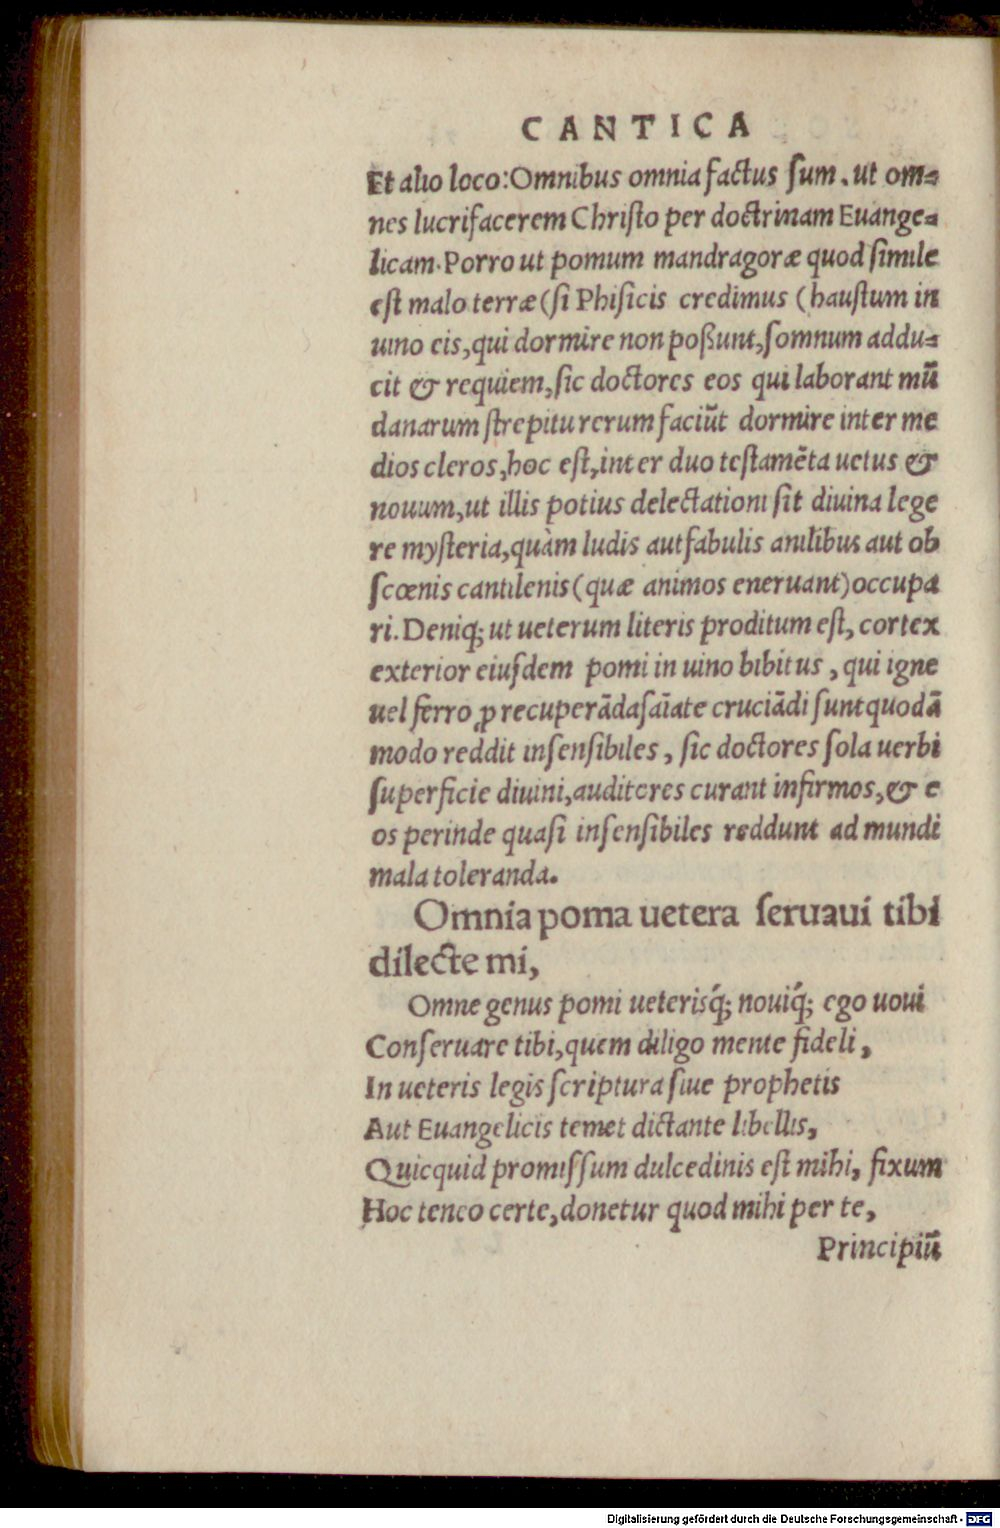 CANTICA
Et alio loco: Omnibus omnia factus ſum. ut om⸗
nes lucrifacerem Chriſto per doctrinam Euange⸗
licam. Porro ut pomum mandragoræ quod ſimile
eſt malo terræ (ſi Phiſicis credimus (hauſtum in
uino eis, qui dormire non poßunt, ſomnum addu⸗
cit & requiem, ſic doctores eos qui laborant mũ
danarum ſtrepitu rerum faciũt dormire inter me
dios cleros, hoc eſt, inter duo teſtamẽta uetus &
nouum, ut illis potius delectationi ſit diuina lege
re myſteria, quàm ludis aut fabulis anilibus aut ob
ſcœnis cantilenis (quæ animos eneruant) occupa
ri. Deniq; ut ueterum literis proditum eſt, cortex
exterior eiuſdem pomi in uino bibitus, qui igne
uel ferro ꝓ recuperãda ſaĩate cruciãdi ſunt quodã
modo reddit inſenſibiles, ſic doctores ſola uerbi
ſuperficie diuini, auditores curant infirmos, & e
os perinde quaſi inſenſibiles reddunt ad mundi
mala toleranda.
Omnia poma uetera ſeruaui tibi
dilecte mi,
Omne genus pomi ueteriſq́; nouiq́; ego uoui
Conſeruare tibi, quem diligo mente fideli,
In ueteris legis ſcriptura ſiue prophetis
Aut Euangelicis temet dictante libellis,
Quicquid promiſſum dulcedinis eſt mihi, fixum
Hoc teneo certe, donetur quod mihi per te,
Principiũ
Digitalisierung gefördert durch die Deutsche Forschungsgemeinschaft - DFG